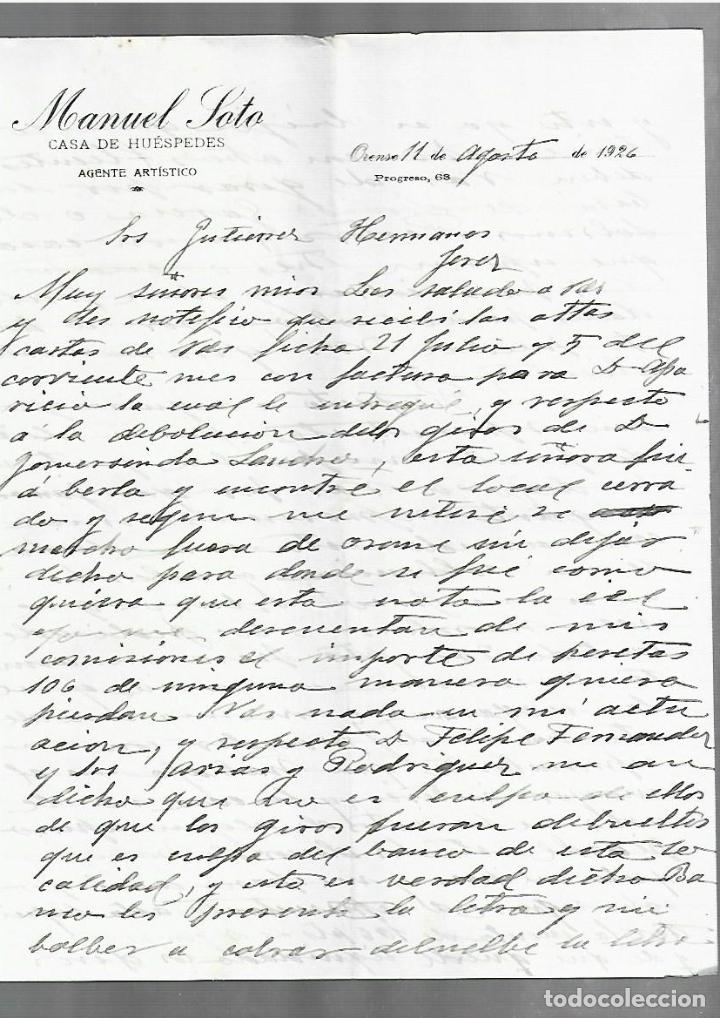 Manuel Soto
CASA DE HUÉSPEDES
AGENTE ARTÍSTICO
Orense 11 de Agosto de 1926
Progreso, 68
Srs Gutierrez Hermanos
Jerez
Muy señores mios Les saludo a Vds
y les notifico que recibi las attas
cartas de Vds fecha 21 Julio y 5 del
corriente mes con factura para D Apa
ricio la cual le entregue, y respecto
á la debolucion delos giros de D
Gomersinda Sanchez, esta señora fui
á berla y encontre el local cerra
do y segun me enteré se
marcho fuera de Orense sin dejar
dicho para donde se fué como
quiera que esta nota la
yo me descuentan de mis
comisiones el importe de pesetas
106 de ninguna manera quiero
pierdan Vds nada en mi actu
acion, y respecto D Felipe Fernandez
y Srs Farias y Rodriguez me an
dicho que no es culpa de ellos
de que los giros fueran debueltos
que es culpa del banco de esta lo
calidad, y esto es verdad dicho Ba
nco les presenta la letra y sin
bolber a cobrar debuelbe la letra
todocoleccion.net